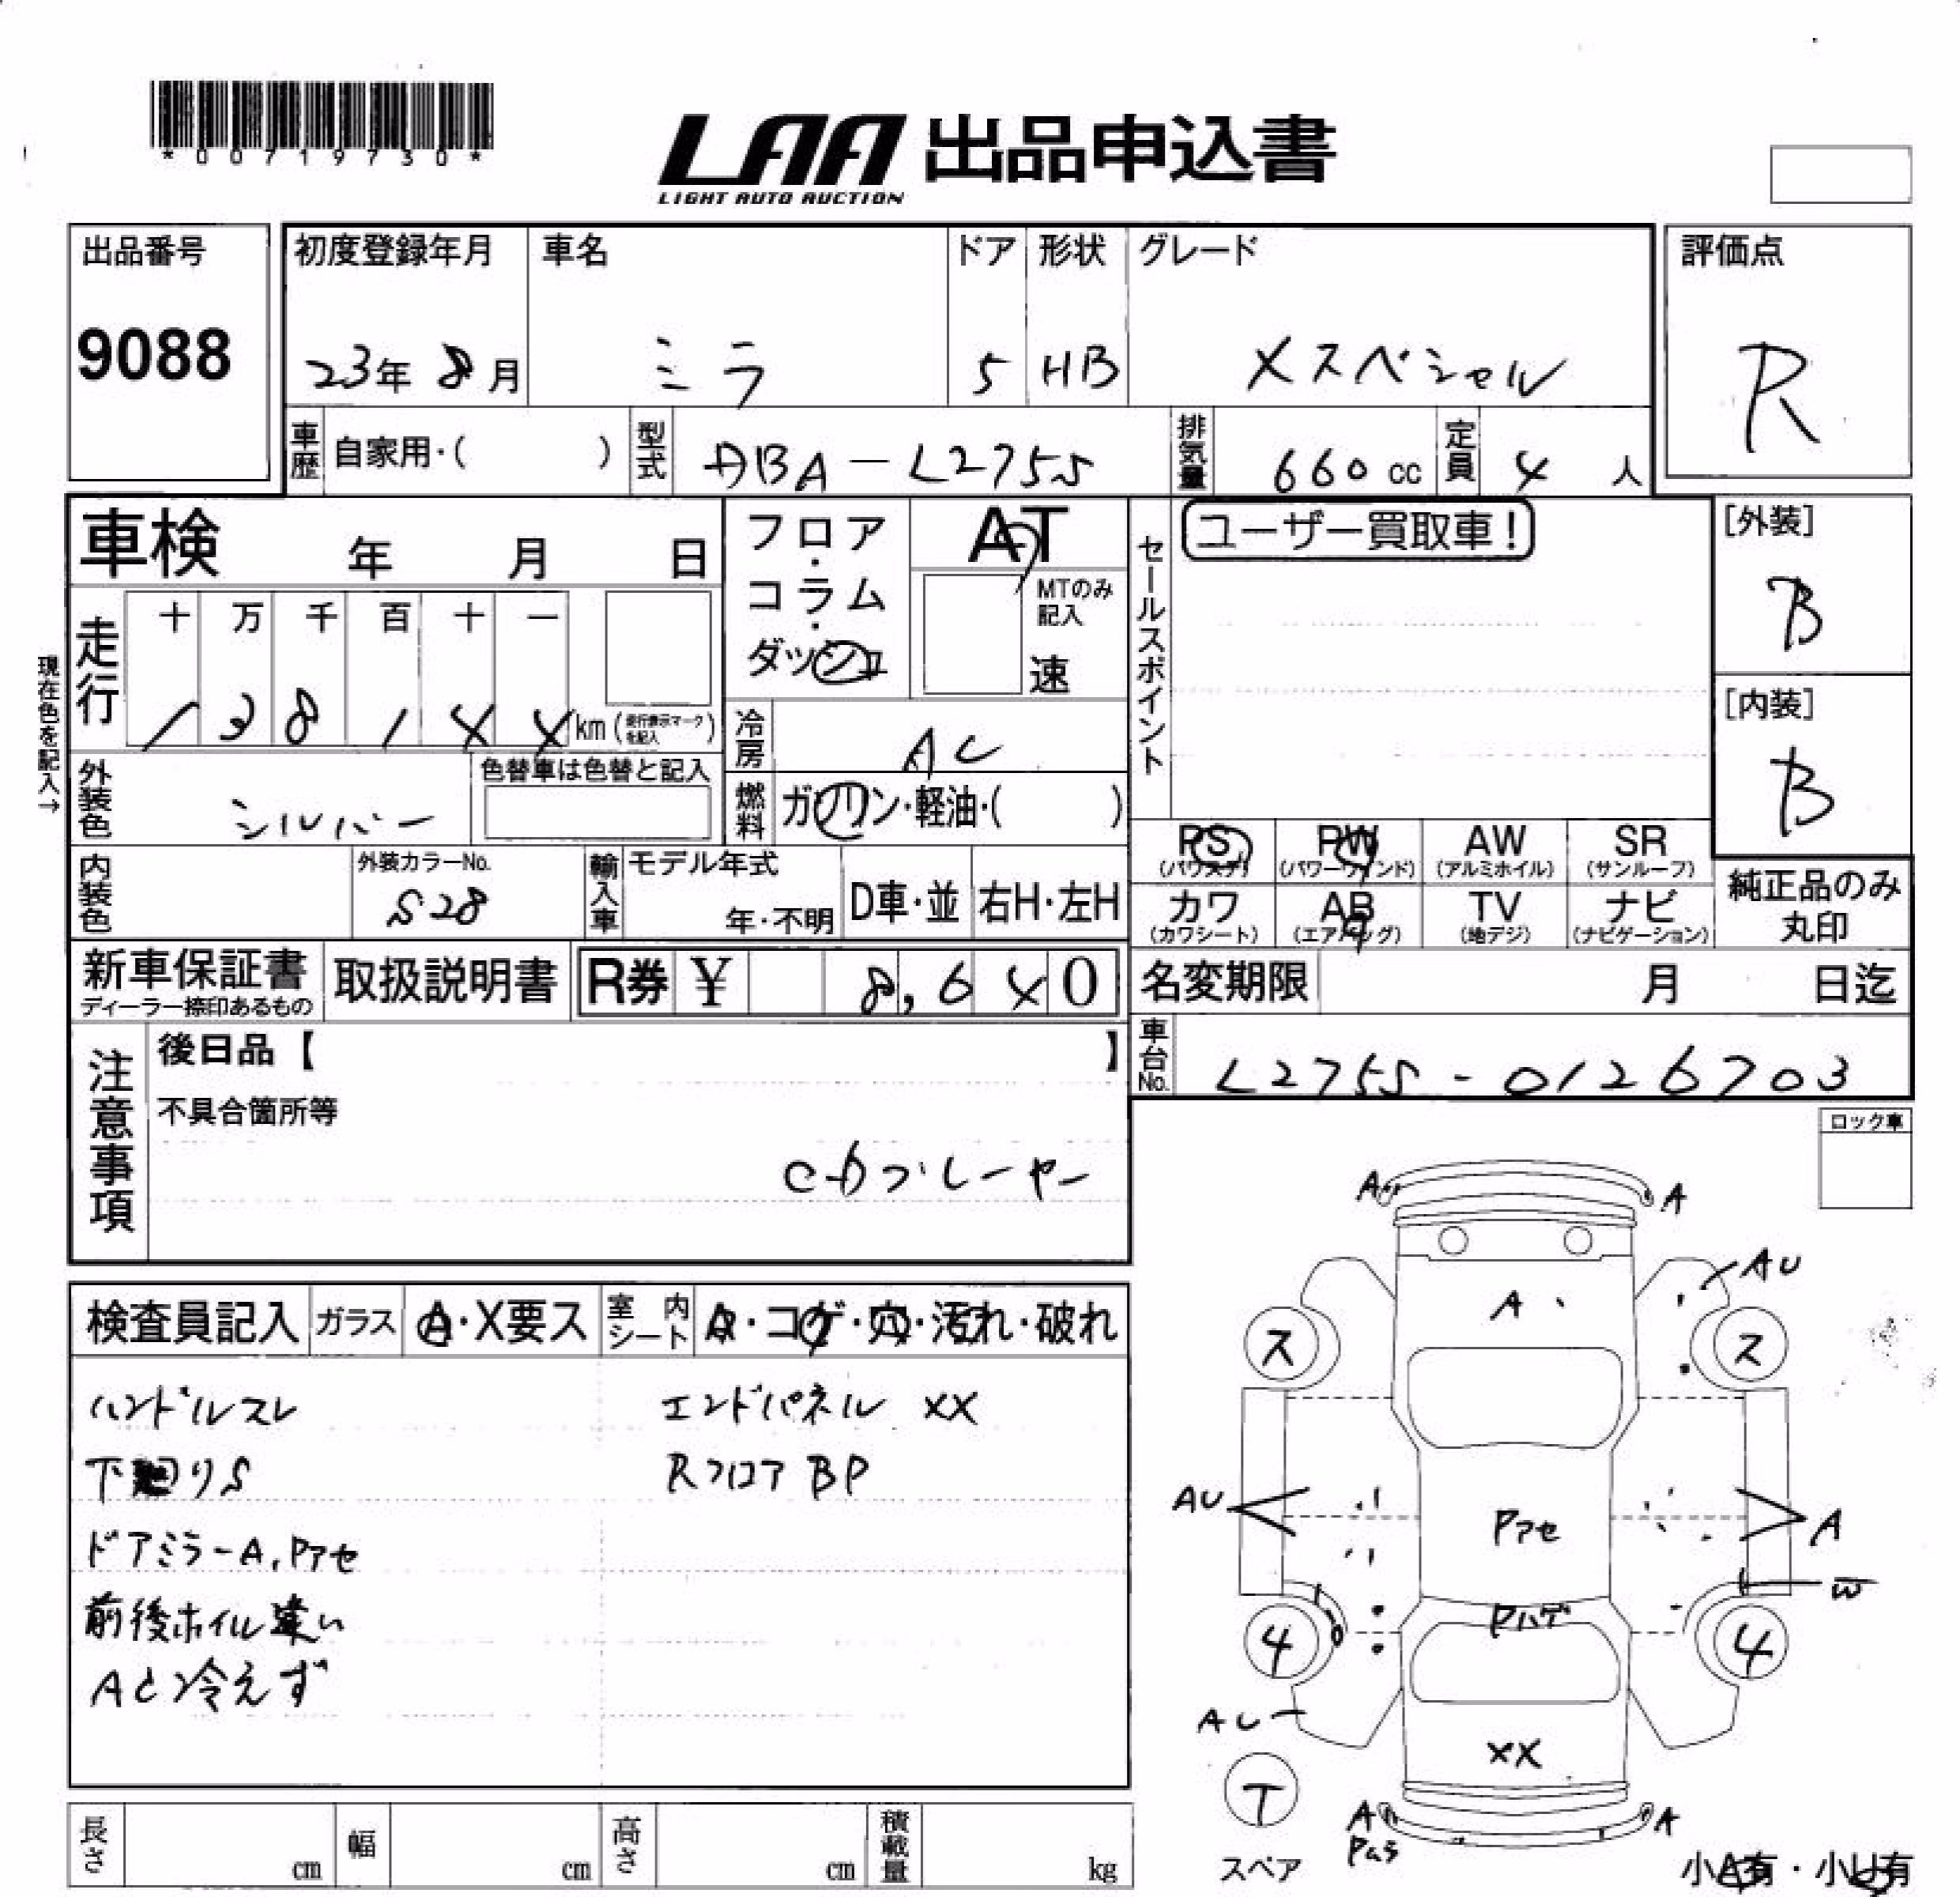 *00719730*
LAA 出品申込書
LIGHT AUTO AUCTION
出品番号
9088
初度登録年月
23年 8月
車名
ミラ
ドア
5
形状
HB
グレード
Xスペシャル
評価点
R
車歴 自家用・( )
型式 DBA-L275S
排気量 660 cc
定員 4 人
車検 年 月 日
フロア・コラム・ダッシュ
AT
MTのみ記入
速
セールスポイント
ユーザー買取車!
[外装]
B
[内装]
B
現在色を記入→
走行 十 万 千 百 十 一
138144 km (走行表示マークを記入)
冷房 AC
外装色 シルバー
色替車は色替と記入
燃料 ガソリン・軽油・( )
PS (パワステ) PW (パワーウインド) AW (アルミホイル) SR (サンルーフ)
内装色
外装カラーNo.
S28
輸入車 モデル年式
年・不明
D車・並 右H・左H
カワ (カワシート) AB (エアバッグ) TV (地デジ) ナビ (ナビゲーション)
純正品のみ丸印
新車保証書
ディーラー捺印あるもの
取扱説明書
R券 ¥ 8,640
名変期限 月 日迄
車台No. L275S-0126703
注意事項
後日品【 】
不具合箇所等
CDプレーヤー
ロック車
検査員記入 ガラス A・X要ス 室内シート A・コゲ・穴・汚れ・破れ
ハンドルスレ エンドパネル XX
下廻りS Rフロア BP
ドアミラーA,Pアセ
前後ホイル違い
AC冷えず
A A
AU
A
ス ス
AU Pアセ A
W
Pハゲ
4 4
AU
XX
T
スペア
A A
長さ cm 幅 cm 高さ cm 積載量 kg
小A有・小U有